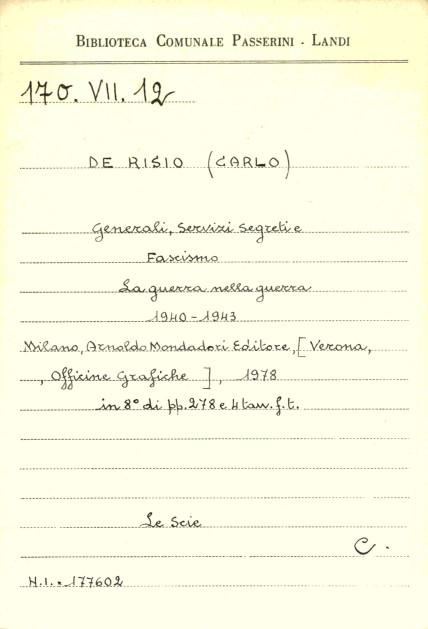 BIBLIOTECA COMUNALE PASSERINI - LANDI
170. VII. 12
DE RISIO (CARLO)
Generali, Servizi Segreti e
Fascismo
La guerra nella guerra
1940-1943
Milano, Arnoldo Mondadori Editore, [Verona,
, Officine Grafiche], 1978
in 8° di pp. 278 e 4 tav. f. t.
Le Scie
C.
N.I. 177602